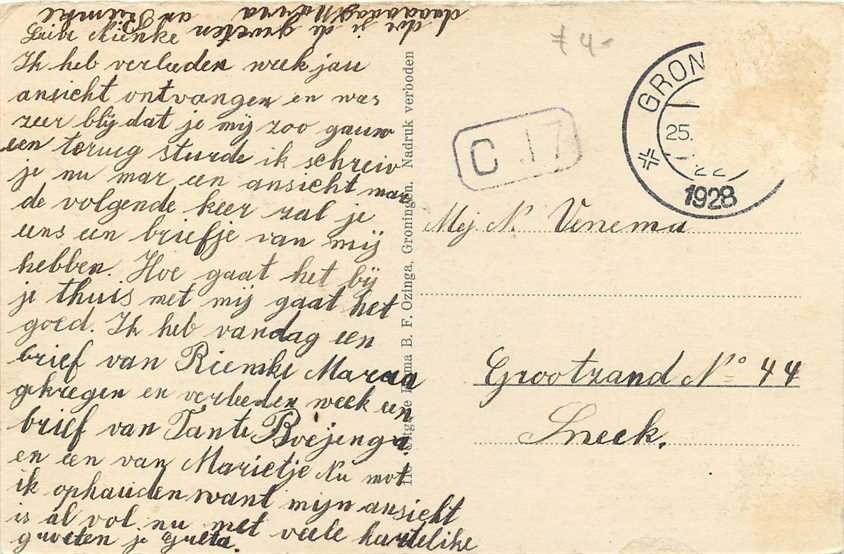 Lieve Nienke
Ik heb verleeden week jou
ansicht ontvangen en was
zeer blij dat je mij zoo gauw
een terug sturde ik schreiv
je nu mar een ansicht mar
de volgende keer zal je
eens een briefje van mij
hebben. Hoe gaat het bij
je thuis met mij gaat het
goed. Ik heb vandag een
brief van Riemke
gekregen en verleeden week een
brief van Tante Boejenga
en een van Marietje Nu mot
ik ophauden want mijn ansicht
is al vol nu met veele hartelike
groeten je Greta.
daaaag
de groeten
an Riemke
Uitgave Firma B. F. Ozinga, Groningen. Nadruk verboden
74-
C 17
GRON
25.
22
1928
Mej N. Venema
Grootzand No 44
Sneek.